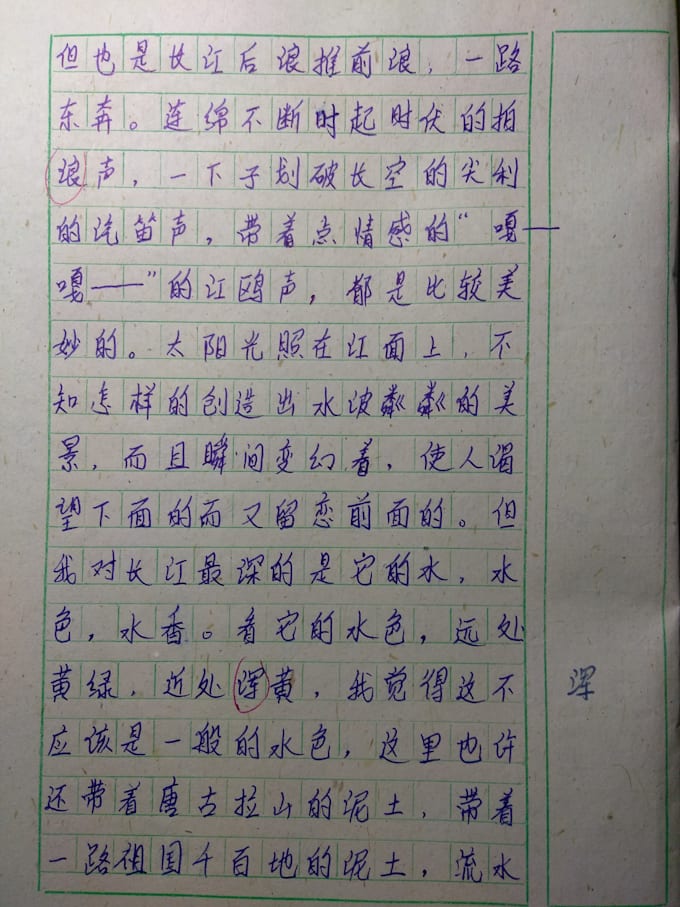 但也是长江后浪推前浪，一路
东奔。连绵不断时起时伏的拍
浪声，一下子划破长空的尖利
的汽笛声，带着点情感的“嘎—
嘎——”的江鸥声，都是比较美
妙的。太阳光照在江面上，不
知怎样的创造出水波粼粼的美
景，而且瞬间变幻着，使人渴
望下面的而又留恋前面的。但
我对长江最深的是它的水，水
色，水香。看它的水色，远处
黄绿，近处浑黄，我觉得这不
应该是一般的水色，这里也许
还带着唐古拉山的泥土，带着
一路祖国千百地的泥土，流水
浑